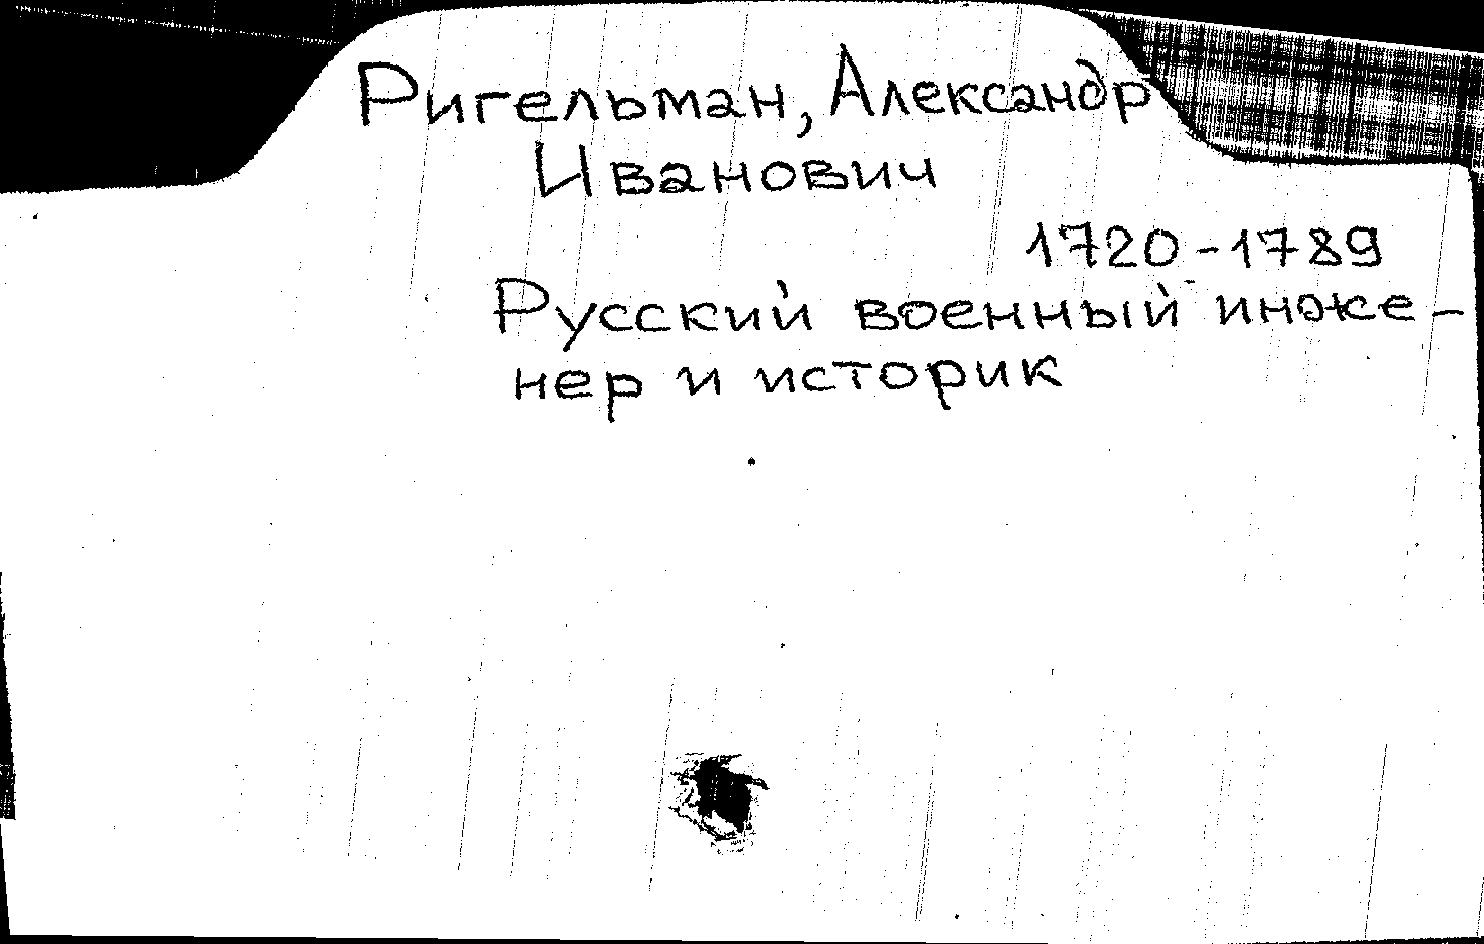 Ригельман, Александр
Иванович
1720-1789
Русский военный инже-
нер и историк